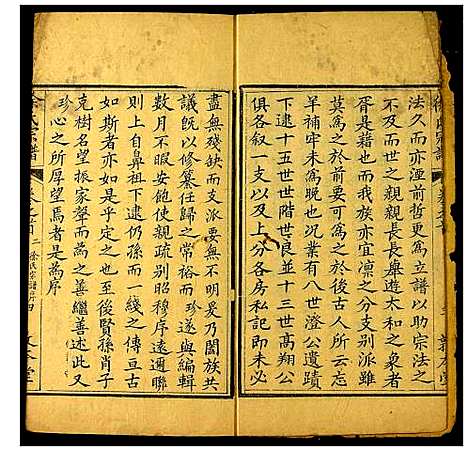 法久而亦湮前哲更為立譜以助宗法之
不及而世之親親長長皞遊太和之象者
胥是藉也而我族亦宜凜之分支别派雖
莫為之於前要可為之於後古人所云忘
羊補牢未為晚也況業有八世澄公遺蹟
下逮十五世世階世良以及三世高翔公
俱各叙一支以及上分各房私記即未必
盡無殘缺而支派要無不明爰乃闔族共
議既以修纂任歸之常裕而珍遂與編輯
數月不暇安飽使親疏别昭穆序遠通聯
則上自鼻祖下逮仍孫而一綫之傳亘古
如斯者亦如是乎定之也至後賢孫肖子
克樹名望振家聲而為之善繼善述此又
珍心之所厚望焉者是為序
徐氏宗譜
卷之首
二
徐氏宗譜序
四